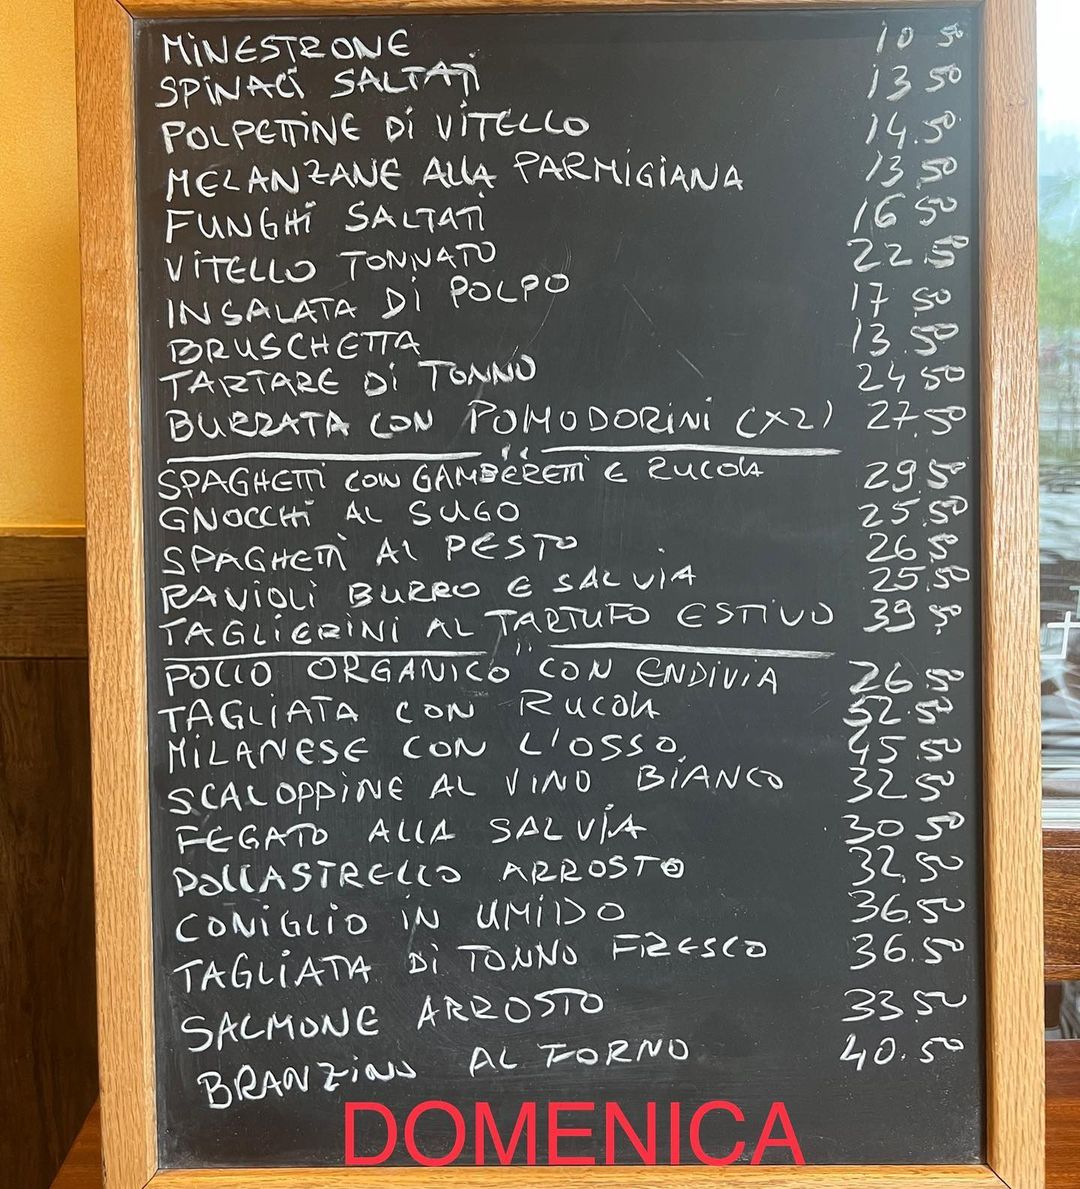 MINESTRONE 10 50
SPINACI SALTATI 13 50
POLPETTINE DI VITELLO 14.50
MELANZANE ALLA PARMIGIANA 13 50
FUNGHI SALTATI 16 50
VITELLO TONNATO 22.50
INSALATA DI POLPO 17 50
BRUSCHETTA 13.50
TARTARE DI TONNO 24 50
BURRATA CON POMODORINI (X2) 27.50
SPAGHETTI CON GAMBERETTI E RUCOLA 29 50
GNOCCHI AL SUGO 25.50
SPAGHETTI AL PESTO 26.50
RAVIOLI BURRO E SALVIA 25.50
TAGLIERINI AL TARTUFO ESTIVO 39 50
POLLO ORGANICO CON ENDIVIA 26 50
TAGLIATA CON RUCOLA 52.50
MILANESE CON L'OSSO 45 50
SCALOPPINE AL VINO BIANCO 32 50
FEGATO ALLA SALVIA 30 50
POLLASTRELLO ARROSTO 32,50
CONIGLIO IN UMIDO 36.50
TAGLIATA DI TONNO FRESCO 36.50
SALMONE ARROSTO 33.50
BRANZINO AL FORNO 40.50
DOMENICA